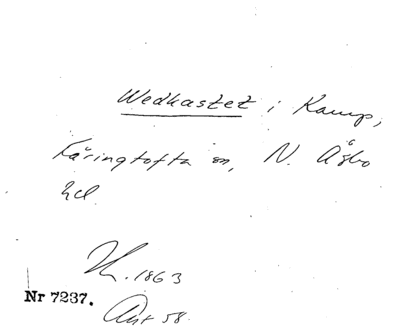 Wedkastet i Kamp,
Färingtofta sn, N. Åsbo
hd
1863
Nr 7237.
58.